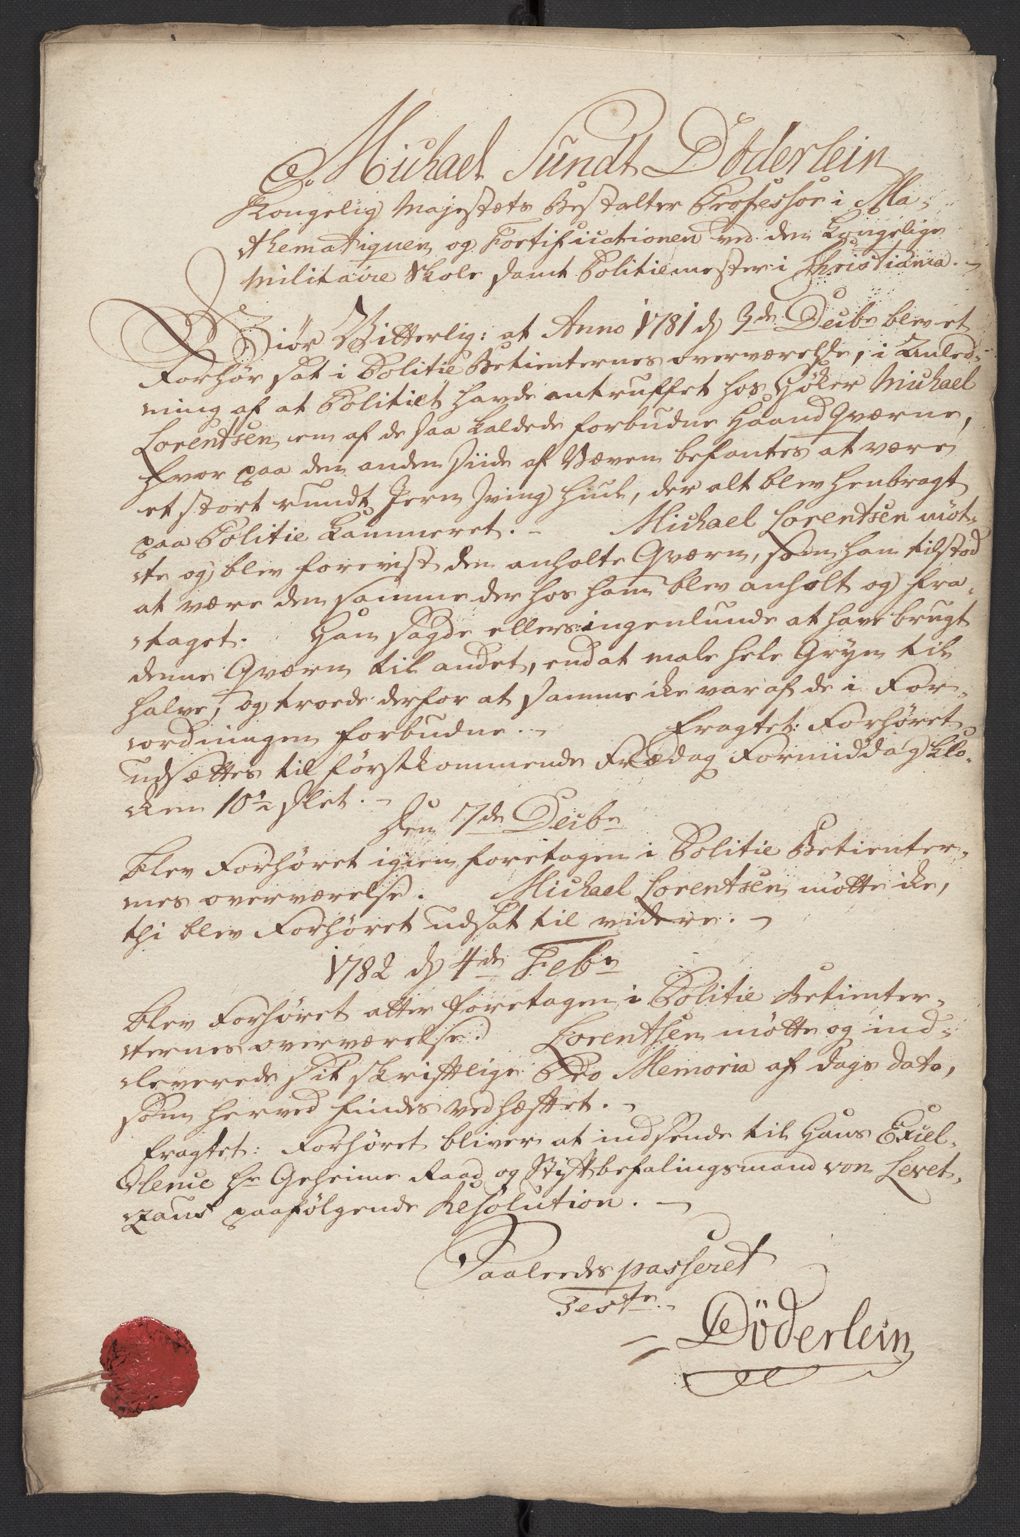 Michael Sundt Döderlein
Kongelig Majestæts Bestalter Professor i Ma-
thematiquen og Fortificationen ved den Kongelige
Militaire Skole samt Politiemester i Christiania. -
Giör Vitterlig: at Anno 1781 d 3de Decibr blev et
Forhör sat i Politie Betienternes overværelse, i Anled-
ning af at Politiet havde antruffet hos Höker Michael
Lorentsen een af de saa kaldede forbudne Haand Qværne,
hvor paa den anden Siide af Væven befantes at være
et stort rundt Jern Sving Hiul, der alt blev henbragt
paa Politie Kammeret. - Michael Lorentsen möt-
te og blev foreviist den anholte Qværn, som han tilstod
at være den samme der hos ham blev anholt og fra-
taget. Han sagde ellers ingenlunde at have brugt
denne Qværn til andet, end at male hele Gryn til
halve, og troede derfor at samme ike var af de i For-
ordningen forbudne. - Fragtet: Forhöret
udsættes til förstkommende Fredag Formiddag Klo-
ken 10 1/2 Slet. -
Den 7de Decibr
blev Forhöret igien foretagen i Politie Betienter-
nes overværelse. Michael Lorentsen mötte ike,
thi blev Forhöret udsat til videre. -
1782 d 4de Febr
blev Forhöret atter foretagen i Politie Betienter-
ternes overværelse. Lorentsen mötte og ind-
leverede sit skriftlige Pro Memoria af Dags dato,
som herved findes vedhæftet. -
Fragtet: Forhöret bliver at indsende til Hans Excel-
lence Hr Geheime Raad og Stiftbefalingsmand von Levet-
zaus paafölgende Resolution. -
Saaleedes passeret
Test. -
Döderlein